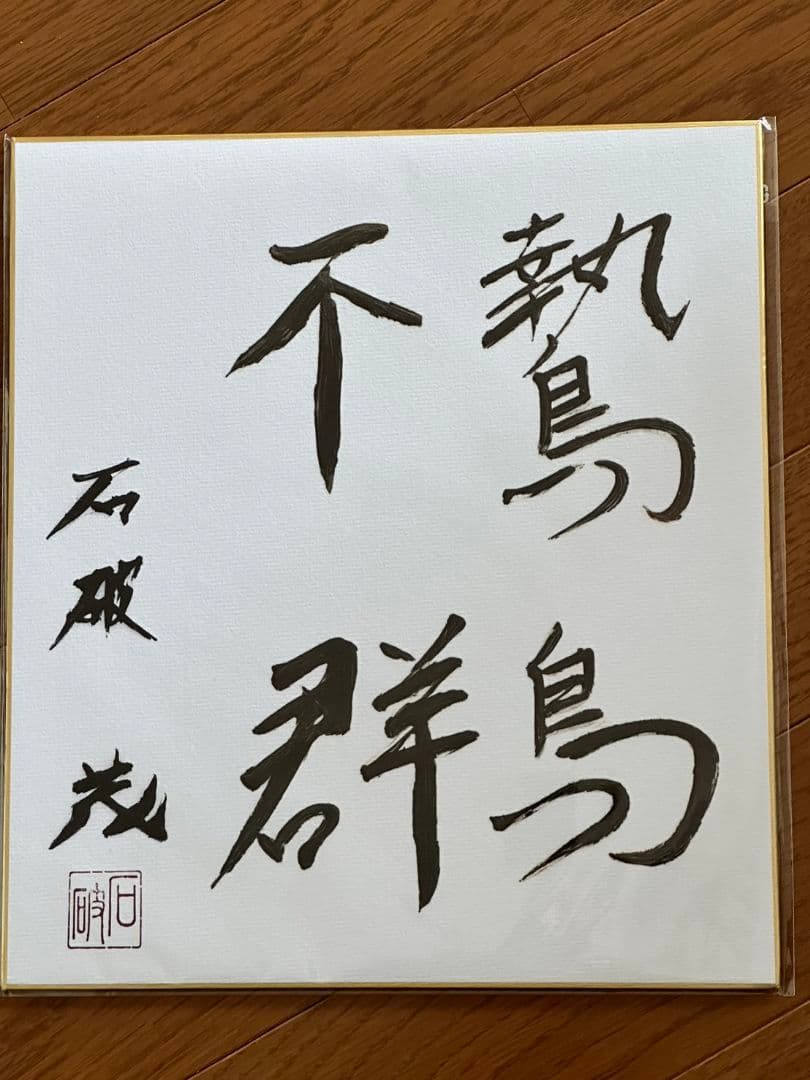 鷙鳥
不群
石破 茂
石破